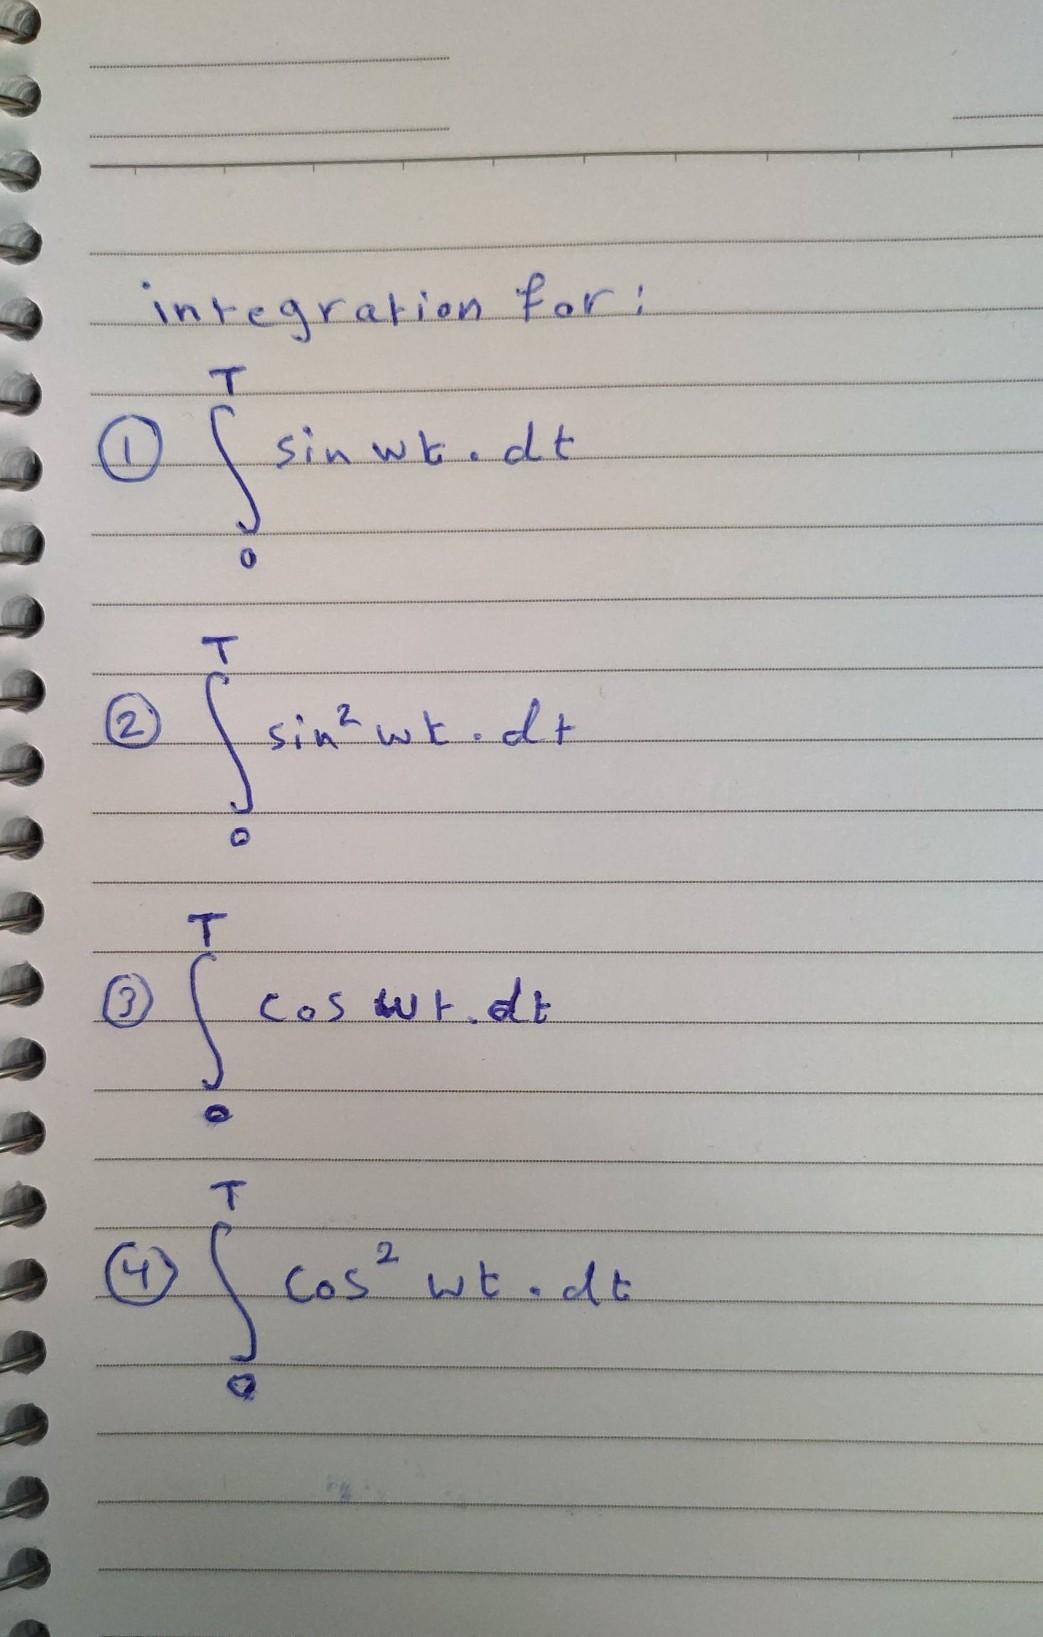 integration for:
① ∫₀ᵀ sin wt . dt
② ∫₀ᵀ sin² wt . dt
③ ∫₀ᵀ cos wt . dt
④ ∫₀ᵀ cos² wt . dt